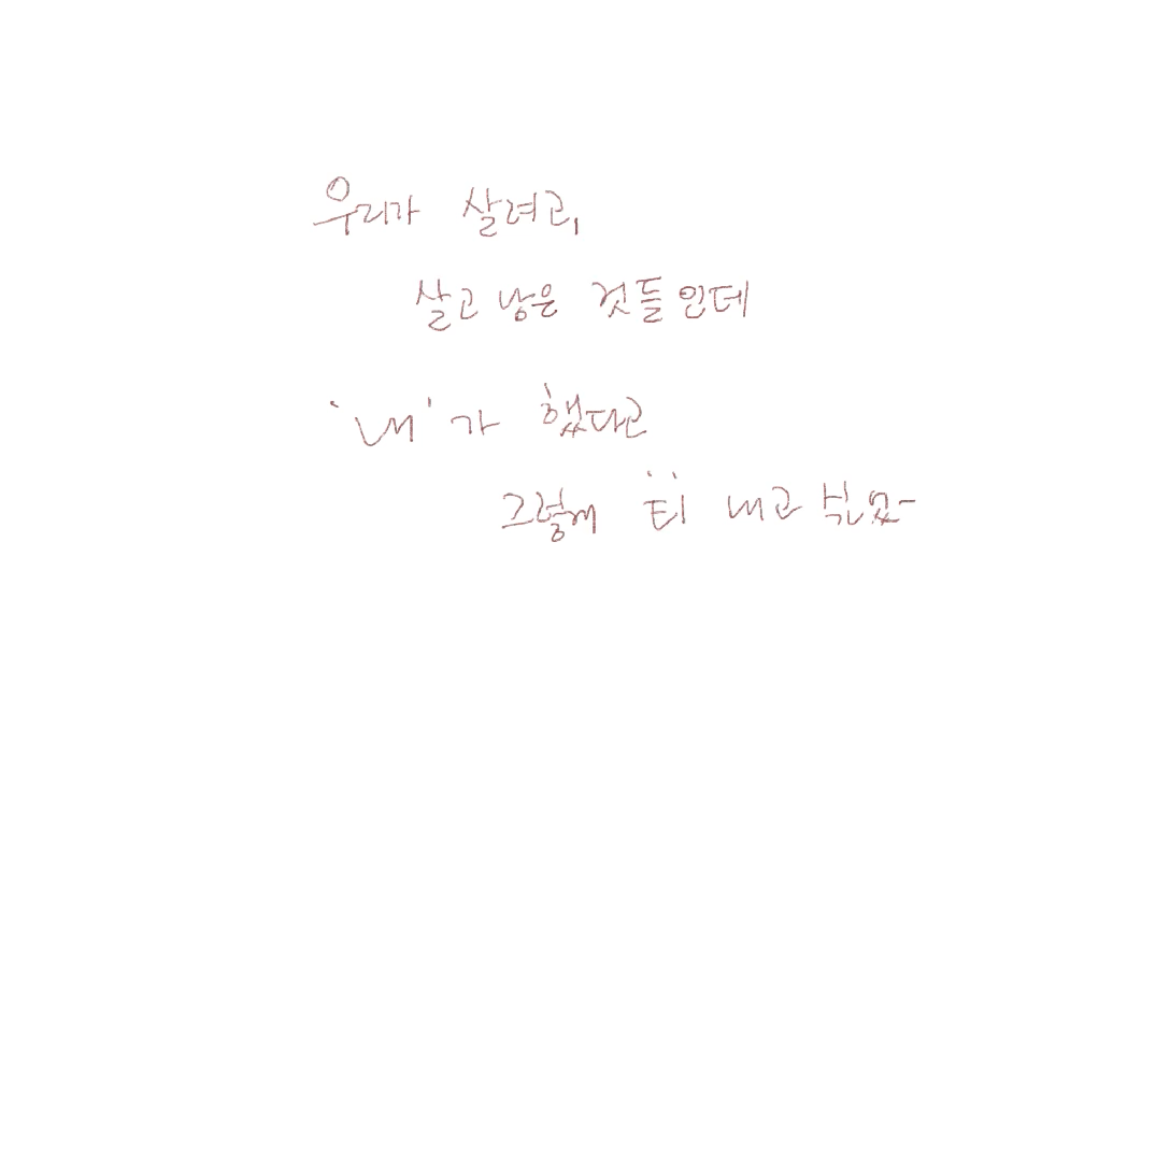 우리가 살려고,
살고 남은 것들인데
'내'가 했다고
그렇게 티 내고